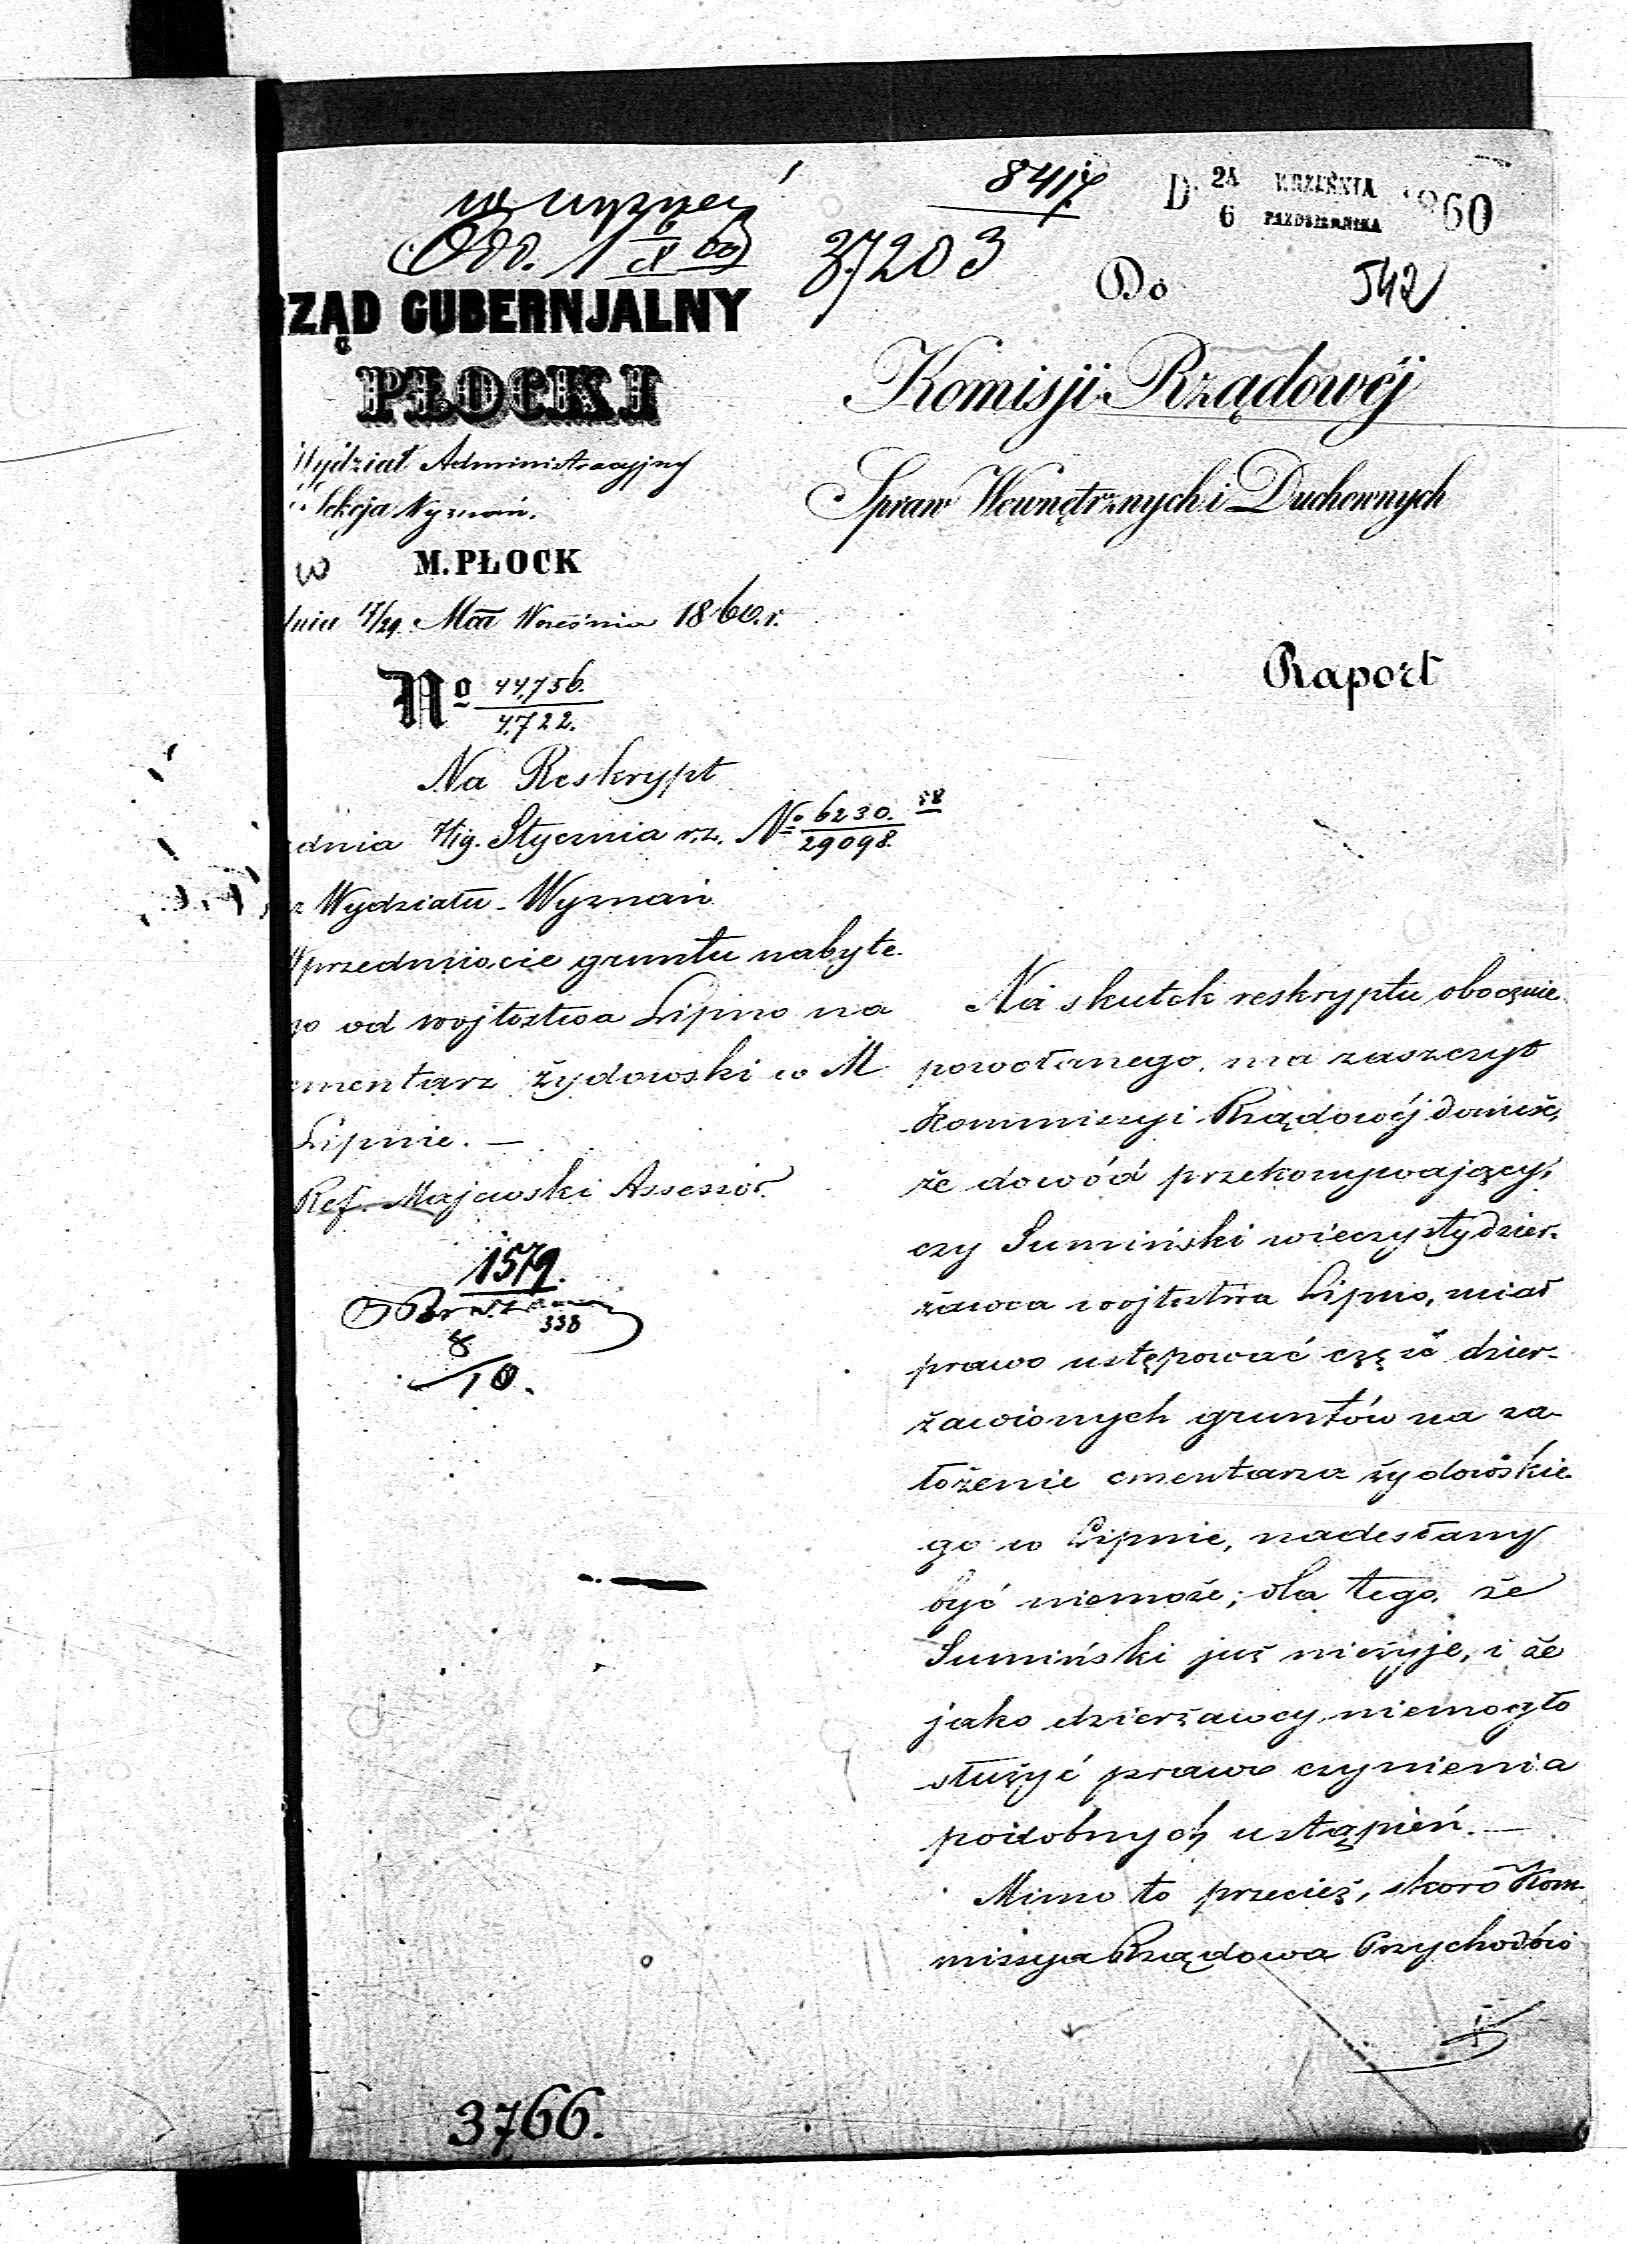 8417
D. 24 WRZEŚNIA 1860
6 PAZDZIERNIKA
37203
Do
542
RZĄD GUBERNJALNY
PŁOCKI
Wydział Administracyjny
Sekcja Wyznań.
w M. PŁOCK
dnia 17/29 Mca Września 1860. r.
No 44,756.
4,722.
Na Reskrypt
dnia 7/19. Stycznia r.z. No 6230. 58
29098.
z Wydziału Wyznań
W przedmiocie gruntu nabyte-
go od wojtostwa Lipno na
cmentarz żydowski w M
Lipnie. —
Ref. Majewski Assessor
1579.
338
8
10.
Komisji Rządowéj
Spraw Wewnętrznych i Duchownych
Raport
Na skutek reskryptu obocznie
powołanego, ma zaszczyt
Kommissyi Rządowéj donieść,
że dowód przekonywający,
czy Sumiński wieczysty dzier-
żawca wojtostwa Lipno, miał
prawo ustępować część dzier-
żawionych gruntów na za-
łożenie cmentarza żydowskie-
go w Lipnie, nadesłany
być niemoże; dla tego, że
Sumiński już nieżyje, i że
jako dzierżawcy niemogło
służyć prawo czynienia
podobnych ustąpień. —
Mimo to przecież, skoro Kom-
missya Rządowa Przychodów
3766.